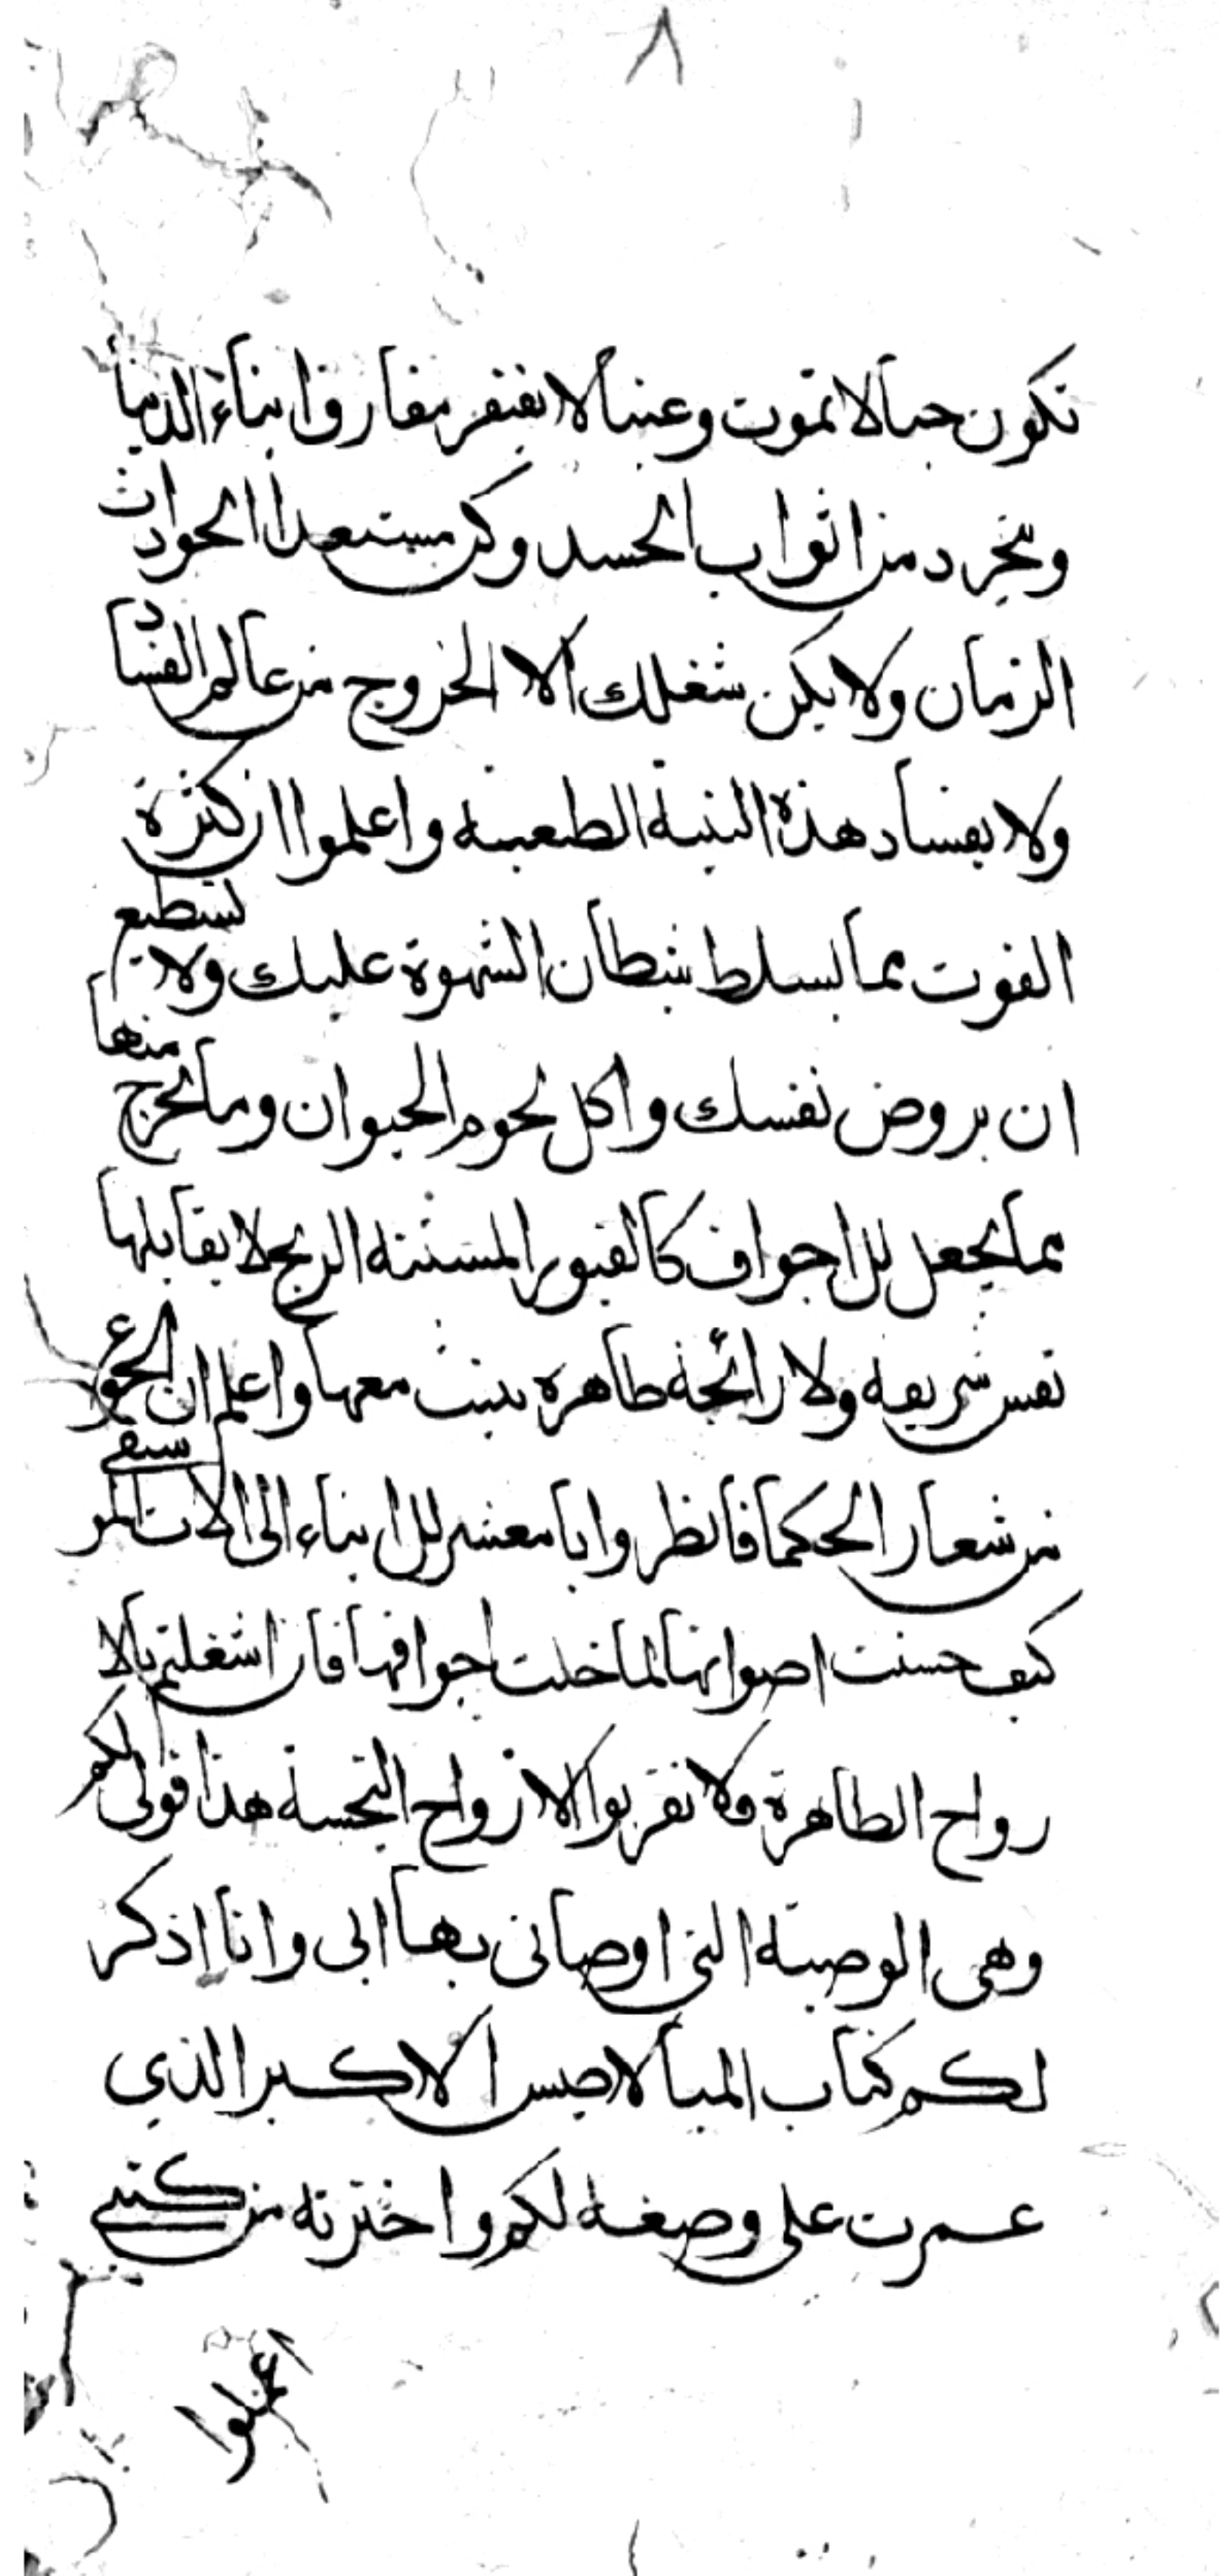 ٨
تكون حيا لا تموت وغنيا لا يفتقر مفارق ابناء الدنيا
وتجرد من اثواب الحسد وكن مستعدا الحوادث
الزمان ولا يكن شغلك الا الخروج من عالم الفساد
ولا بفساد هذه البنية واعلموا ان كثرة
القوت مما يسلط شيطان الشهوة عليك ولا تستطيع
ان تروض نفسك واكل لحوم الحيوان وما يخرج منها
مما يجعل للاجواف كالقبور المنتنة الريح لا يقابلها
نفس شريفة ولا رائحة طاهرة تثبت معها واعلم ان الجوع
من شعار الحكما فانظروا يا معشر للابناء الى الالات الموسيقى
كيف حسنت اصواتها لما خلت اجوافها فان اشغلتم بالا
رواح الطاهرة فلا تقربوا الارواح النجسة هذا قولى لكم
وهى الوصية التى اوصانى بها ابى وانا اذكر
لكم كتاب الميالاصيس الاكبر الذي
عمرت على وصفه لكم واخترته من كتبي
اعملوا